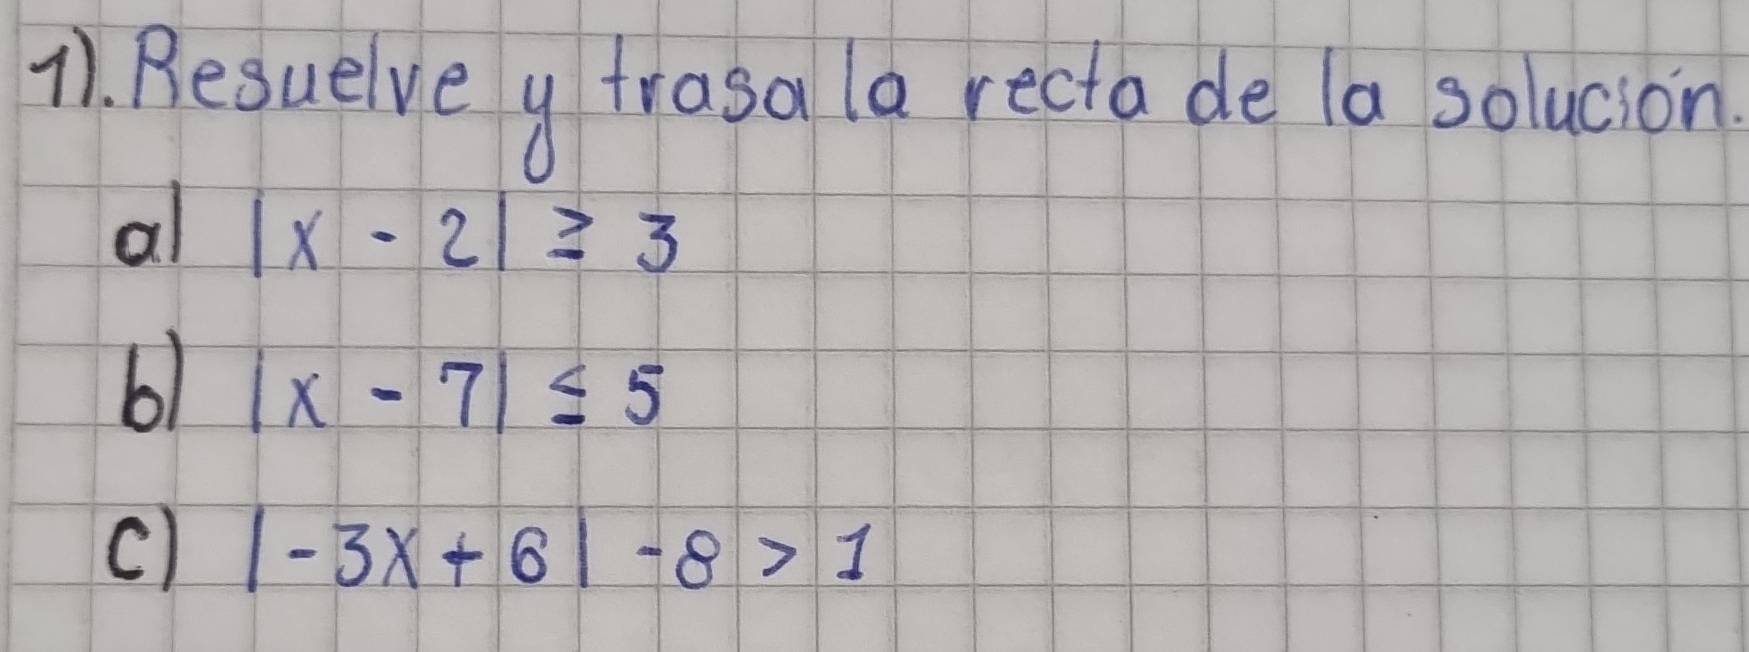 1). Resuelve y trasa la recta de la solución.
a) |x - 2| ≥ 3
b) |x - 7| ≤ 5
c) |-3x + 6| - 8 > 1